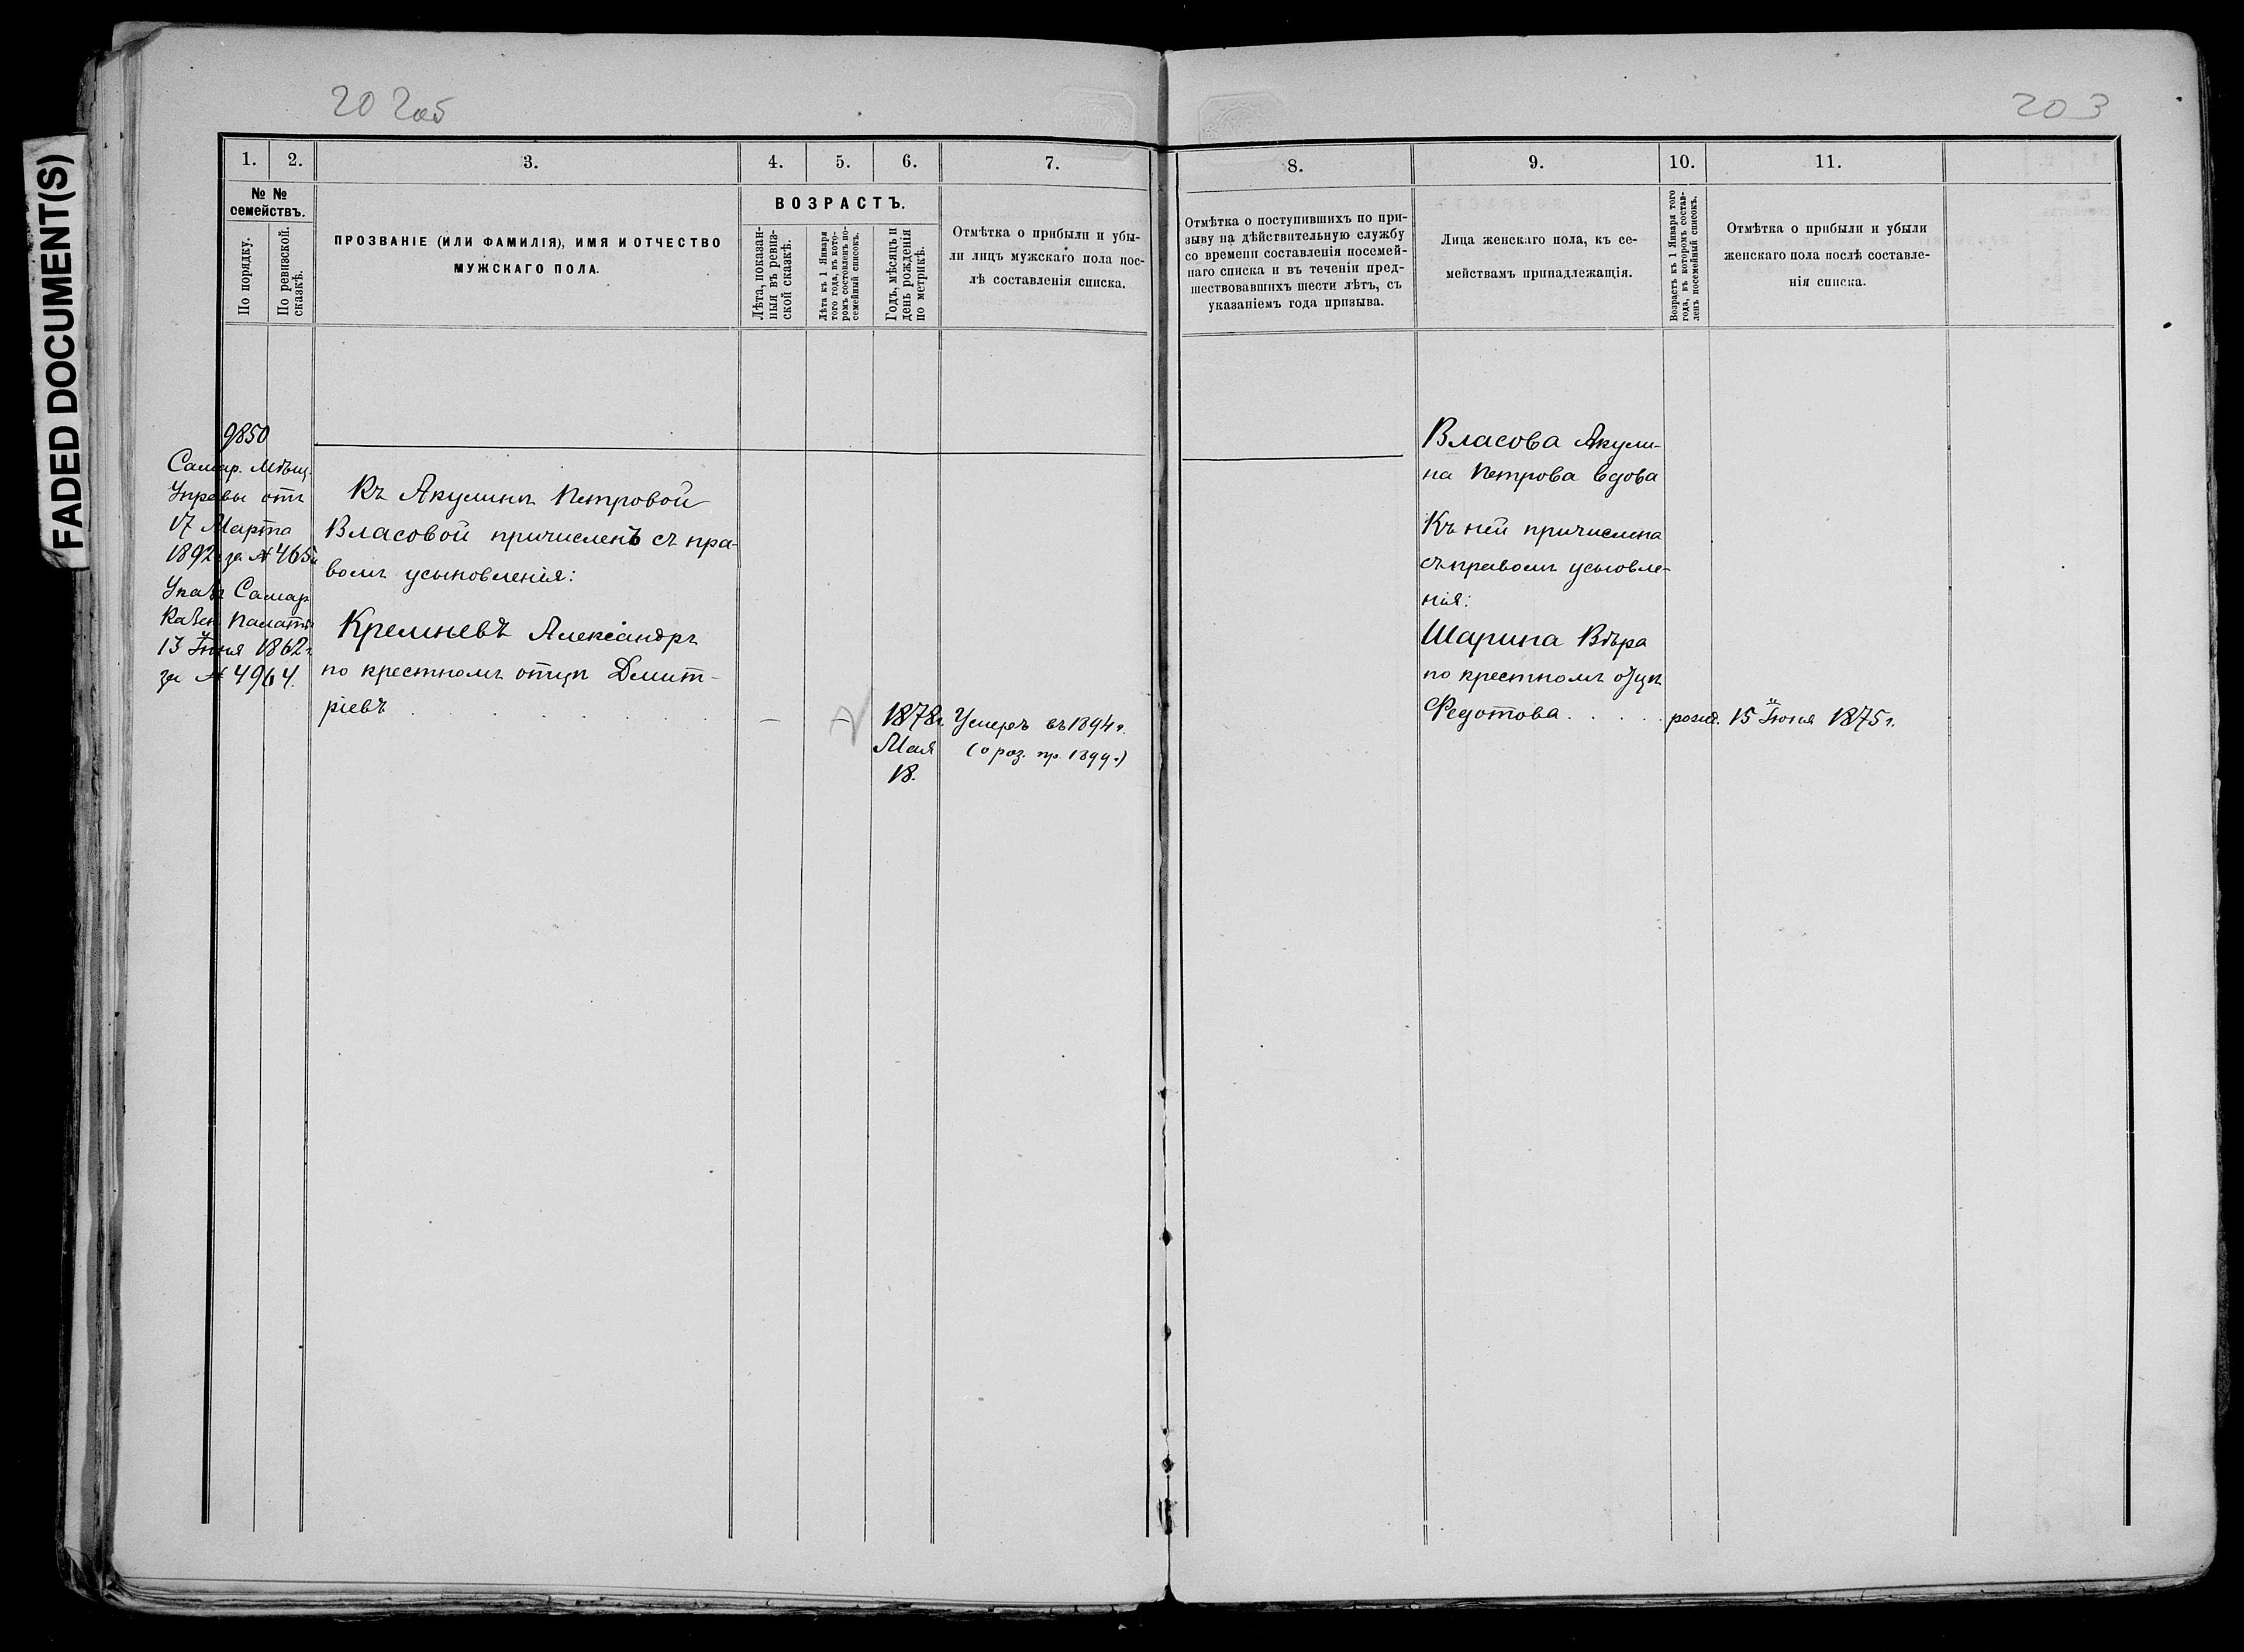 202об
203
FADED DOCUMENT(S)
1.
2.
3.
4.
5.
6.
7.
№ №
семействъ.
По порядку.
По ревизской
сказкѣ.
ПРОЗВАНІЕ (ИЛИ ФАМИЛІЯ), ИМЯ И ОТЧЕСТВО
МУЖСКАГО ПОЛА.
ВОЗРАСТЪ.
Лѣта, показан-
ныя въ ревиз-
ской сказкѣ.
Лѣта къ 1 Января
того года, въ кото-
ромъ составленъ по-
семейный список.
Годъ, мѣсяцъ и
день рожденія
по метрикѣ.
Отмѣтка о прибыли и убы-
ли лицъ мужскаго пола пос-
лѣ составленія списка.
8.
9.
10.
11.
Отмѣтка о поступившихъ по при-
зыву на дѣйствительную службу
со времени составленія посемей-
наго списка и въ теченіи пред-
шествовавшихъ шести лѣтъ, съ
указаніемъ года призыва.
Лица женскаго пола, къ се-
мействамъ принадлежащія.
Возрастъ къ 1 Января того
года, въ которомъ состав-
ленъ посемейный списокъ.
Отмѣтка о прибыли и убыли
женскаго пола послѣ составле-
нія списка.
9850
Самар. Мѣщ.
Управы отъ
17 Марта
1892 за № 465
Указъ Самар.
Казен. Палаты
13 Іюня 1862 г.
за № 4964.
Къ Акулинѣ Петровой
Власовой причисленъ съ пра-
вомъ усыновленія:
Кремневъ Александръ
по крестномъ отцѣ Дмит-
ріевъ . . . . . . .
— —
1878 г.
Мая
18.
Умеръ въ 1894 г.
(о роз. пр. 1899 г.)
Власова Акули-
на Петрова вдова
Къ ней причислена
съ правомъ усыновле-
нія:
Шарина Вѣра
по крестномъ отцѣ
Федотова . . . . рожд. 15 Іюня 1875 г.